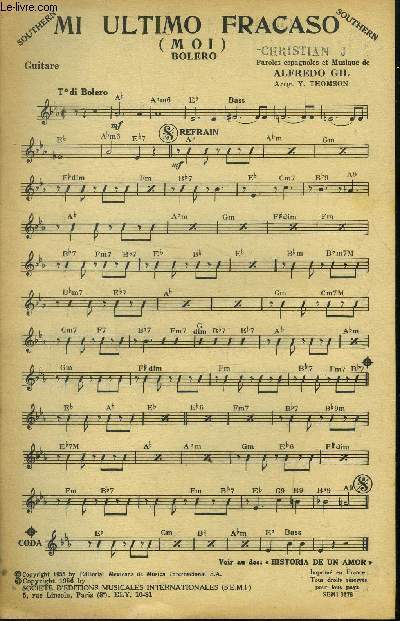 SOUTHERN
MI ULTIMO FRACASO
SOUTHERN
(MOI)
BOLERO
CHRISTIAN J
Guitare
Paroles espagnoles et Musique de
ALFREDO GIL
Arrgt. Y. THOMSON
T° di Bolero
Ab Abm6 Eb Bass
mf
Eb Eb7 REFRAIN Ab Abm Gm
mf
F#dim Fm Bb7 Eb Cm7 Bb9 A9
Ab Abm Gm F#dim Fm
Bb7 Fm7 Bb7 Eb Bbm Bbm7M
Bbm7 Eb7 Ab Gm Cm7M
Cm7 F7 Bb7 Fm7 G dim Bb7 Eb7 Ab Abm
Gm F#dim Fm Bb7 Fm7 Bb7
Eb Ab Eb Eb6 Fm7 Bb7 Bb9m
Eb7M Ab Abm Gm Eb6 F#dim
Fm Bb7 Eb7 Eb C9 B9 Bb9 A9
CODA Eb Cm Bb Abm Eb Bass
Voir au dos: « HISTORIA DE UN AMOR »
© Copyright 1955 by Editorial Mexicana de Musica Internacional S.A.
© Copyright 1956 by
SOCIÉTÉ D'ÉDITIONS MUSICALES INTERNATIONALES (S.E.M.I.)
5, rue Lincoln, Paris (8e). ELY. 10-51
Imprimé en France
Tous droits réservés
pour tous pays
LE-LIVRE.COM